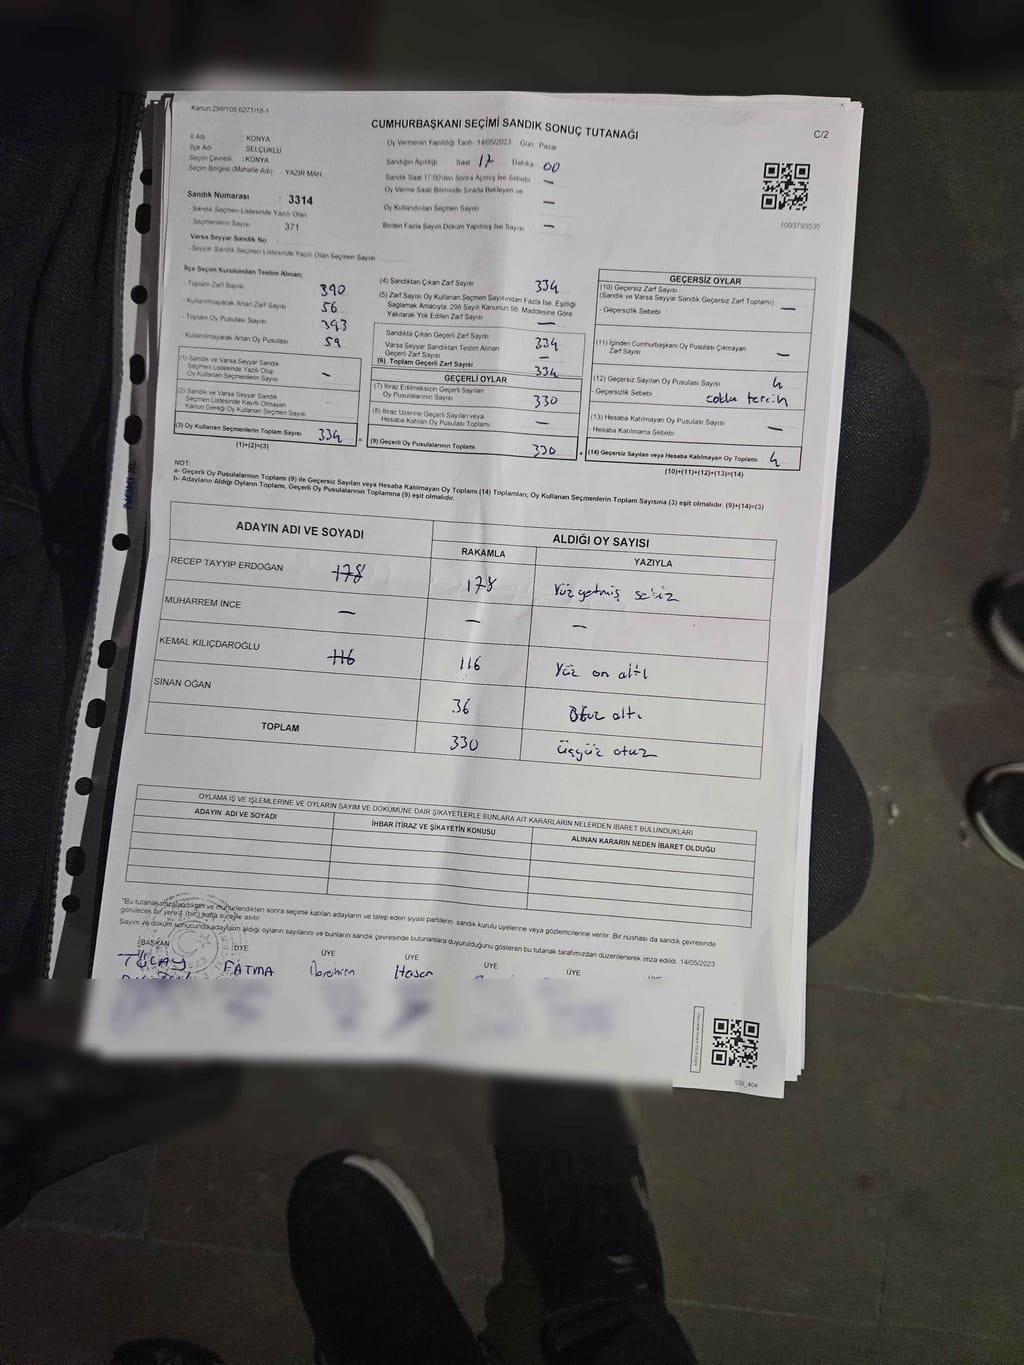 Kanun 298/105,6271/18-1
CUMHURBAŞKANI SEÇİMİ SANDIK SONUÇ TUTANAĞI
C/2
İl Adı : KONYA
İlçe Adı : SELÇUKLU
Seçim Çevresi : KONYA
Seçim Bölgesi (Mahalle Adı) : YAZIR MAH
Oy Vermenin Yapıldığı Tarih : 14/05/2023 Gün : Pazar
Sandığın Açıldığı Saat 17 Dakika 00
Sandık Saat 17:00'den Sonra Açılmış İse Sebebi —
Oy Verme Saati Bitiminde Sırada Bekleyen ve
Oy Kullandırılan Seçmen Sayısı —
Birden Fazla Sayım Döküm Yapılmış İse Sayısı —
1093793535
Sandık Numarası : 3314
- Sandık Seçmen Listesinde Yazılı Olan
Seçmenlerin Sayısı : 371
Varsa Seyyar Sandık No
- Seyyar Sandık Seçmen Listesinde Yazılı Olan Seçmen Sayısı
İlçe Seçim Kurulundan Teslim Alınan;
- Toplam Zarf Sayısı 390
- Kullanılmayarak Artan Zarf Sayısı 56
- Toplam Oy Pusulası Sayısı 393
- Kullanılmayarak Artan Oy Pusulası 59
(1) Sandık ve Varsa Seyyar Sandık
Seçmen Listesinde Yazılı Olup
Oy Kullanan Seçmenlerin Sayısı –
(2) Sandık ve Varsa Seyyar Sandık
Seçmen Listesinde Kayıtlı Olmayan
Kanun Gereği Oy Kullanan Seçmen Sayısı
(3) Oy Kullanan Seçmenlerin Toplam Sayısı 334
(1)+(2)=(3)
(4) Sandıktan Çıkan Zarf Sayısı 334
(5) Zarf Sayısı Oy Kullanan Seçmen Sayısından Fazla İse, Eşitliği
Sağlamak Amacıyla, 298 Sayılı Kanunun 98. Maddesine Göre
Yakılarak Yok Edilen Zarf Sayısı —
Sandıkta Çıkan Geçerli Zarf Sayısı 334
Varsa Seyyar Sandıktan Teslim Alınan
Geçerli Zarf Sayısı —
(6) Toplam Geçerli Zarf Sayısı 334
GEÇERLİ OYLAR
(7) İtiraz Edilmeksizin Geçerli Sayılan
Oy Pusulalarının Sayısı 330
(8) İtiraz Üzerine Geçerli Sayılan veya
Hesaba Katılan Oy Pusulası Toplamı —
= (9) Geçerli Oy Pusulalarının Toplamı 330
GEÇERSİZ OYLAR
(10) Geçersiz Zarf Sayısı
(Sandık ve Varsa Seyyar Sandık Geçersiz Zarf Toplamı) —
- Geçersizlik Sebebi
(11) İçinden Cumhurbaşkanı Oy Pusulası Çıkmayan
Zarf Sayısı —
(12) Geçersiz Sayılan Oy Pusulası Sayısı 4
- Geçersizlik Sebebi çoklu tercih
(13) Hesaba Katılmayan Oy Pusulası Sayısı —
- Hesaba Katılmama Sebebi
+ (14) Geçersiz Sayılan veya Hesaba Katılmayan Oy Toplamı 4
(10)+(11)+(12)+(13)=(14)
NOT:
a- Geçerli Oy Pusulalarının Toplamı (9) ile Geçersiz Sayılan veya Hesaba Katılmayan Oy Toplamı (14) Toplamları, Oy Kullanan Seçmenlerin Toplam Sayısına (3) eşit olmalıdır. (9)+(14)=(3)
b- Adayların Aldığı Oyların Toplamı, Geçerli Oy Pusulalarının Toplamına (9) eşit olmalıdır.
ADAYIN ADI VE SOYADI
ALDIĞI OY SAYISI
RAKAMLA YAZIYLA
RECEP TAYYIP ERDOĞAN 178 178 Yüz yetmiş sekiz
MUHARREM İNCE — — —
KEMAL KILIÇDAROĞLU 116 116 Yüz on altı
SİNAN OĞAN 36 Otuz altı
TOPLAM 330 üçyüz otuz
OYLAMA İŞ VE İŞLEMLERİNE VE OYLARIN SAYIM VE DÖKÜMÜNE DAİR ŞİKAYETLERLE BUNLARA AİT KARARLARIN NELERDEN İBARET BULUNDUKLARI
ADAYIN ADI VE SOYADI İHBAR İTİRAZ VE ŞİKAYETİN KONUSU ALINAN KARARIN NEDEN İBARET OLDUĞU
"Bu tutanak imzalandıktan ve mühürlendikten sonra seçime katılan adayların ve talep eden siyasi partilerin sandık kurulu üyelerine veya gözlemcilerine verilir. Bir nüshası da sandık çevresinde
görülecek bir yere 1 (bir) hafta süreyle asılır
Sayım ve döküm sonucunda adayların aldığı oyların sayılarını ve bunların sandık çevresinde bulunanlara duyurulduğunu gösteren bu tutanak tarafımızdan düzenlenerek imza edildi. 14/05/2023
BAŞKAN ÜYE ÜYE ÜYE ÜYE ÜYE
TÜLAY FATMA İbrahim Hasan
SSI_404